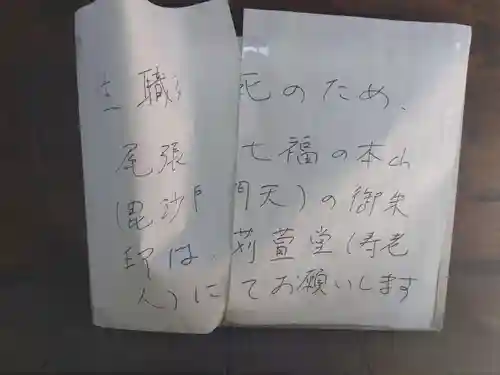 主職死のため、
尾張七福の本山
(毘沙門天)の御朱
印は、苅萱堂(寿老
人)にてお願いします